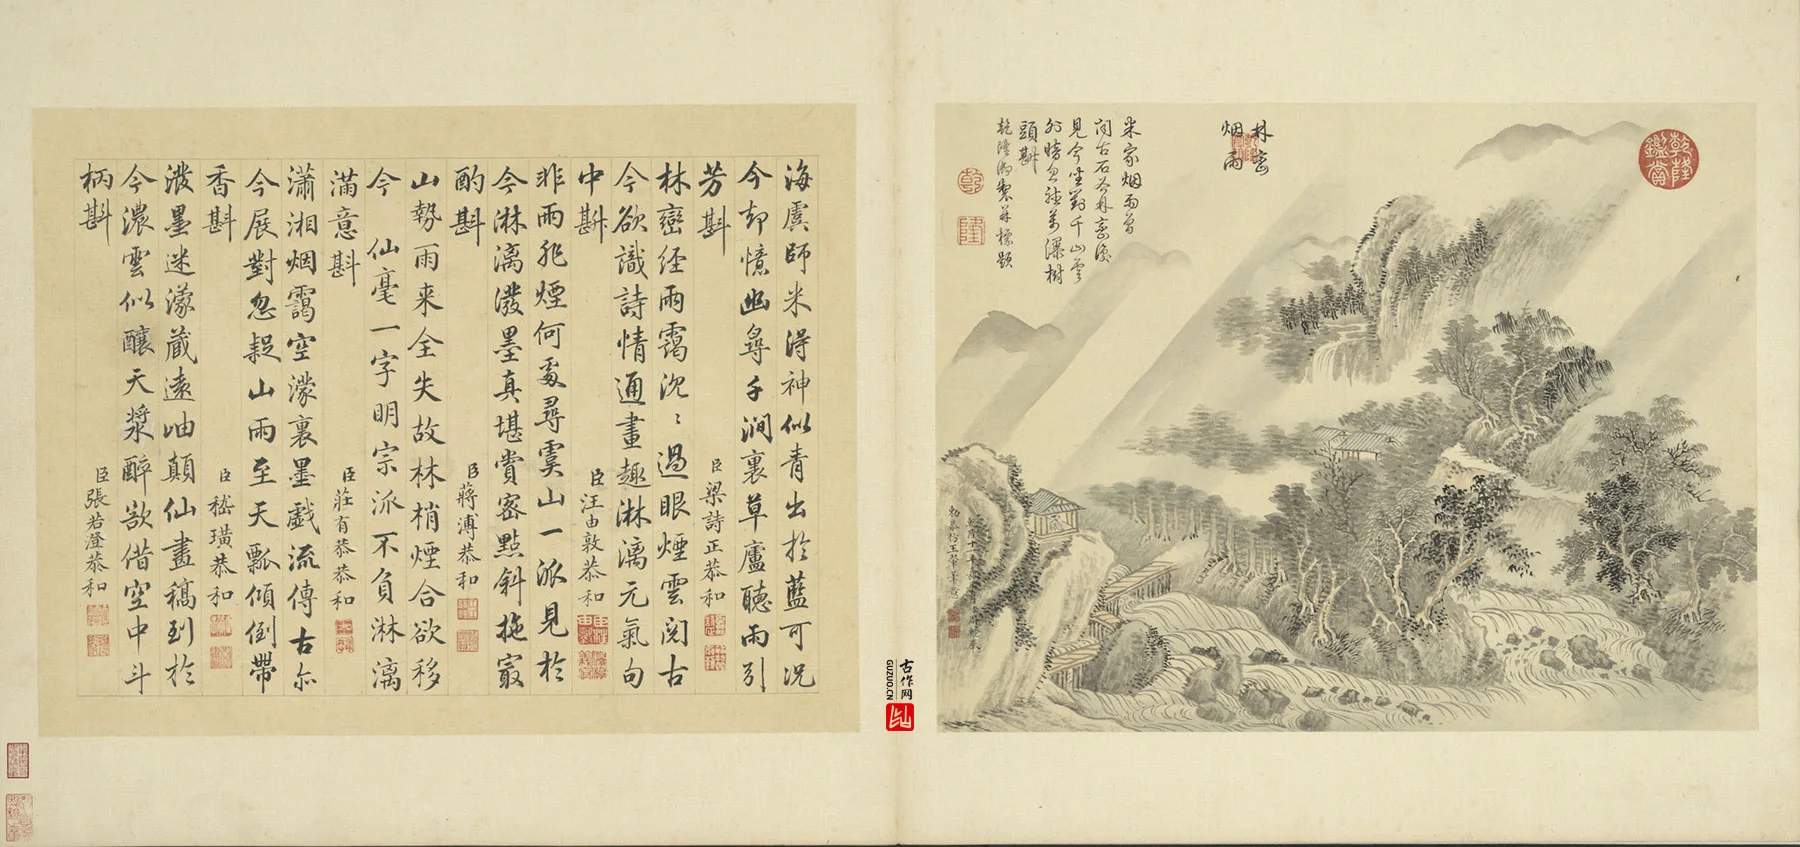 乾隆鑑賞
林巒
烟雨
米家烟雨曾
聞古石谷林巒復
見今坐對千山雲
外暗忽聽萬瀑樹
頭斟
乾隆御製并標題
乾
隆
海虞師米得神似青出於藍可況
今却憶幽尋千澗裏草廬聽雨引
芳斟 臣梁詩正恭和
林巒經雨靄沈〻過眼煙雲閱古
今欲識詩情通畫趣淋漓元氣句
中斟 臣汪由敦恭和
非雨非煙何處尋虞山一派見於
今淋漓潑墨真堪賞密點斜拖㝡
酌斟 臣蔣溥恭和
山勢雨来全失故林梢煙合欲移
今 仙毫一字明宗派不負淋漓
滿意斟 臣莊有恭恭和
瀟湘烟靄空濛裏墨戲流傳古亦
今展對忽疑山雨至天瓢傾倒帶
香斟 臣嵇璜恭和
潑墨迷濛藏遠岫顛仙畫稿到於
今濃雲似釀天漿醉欲借空中斗
柄斟 臣張若澄恭和
古作网
GUZUO.CN